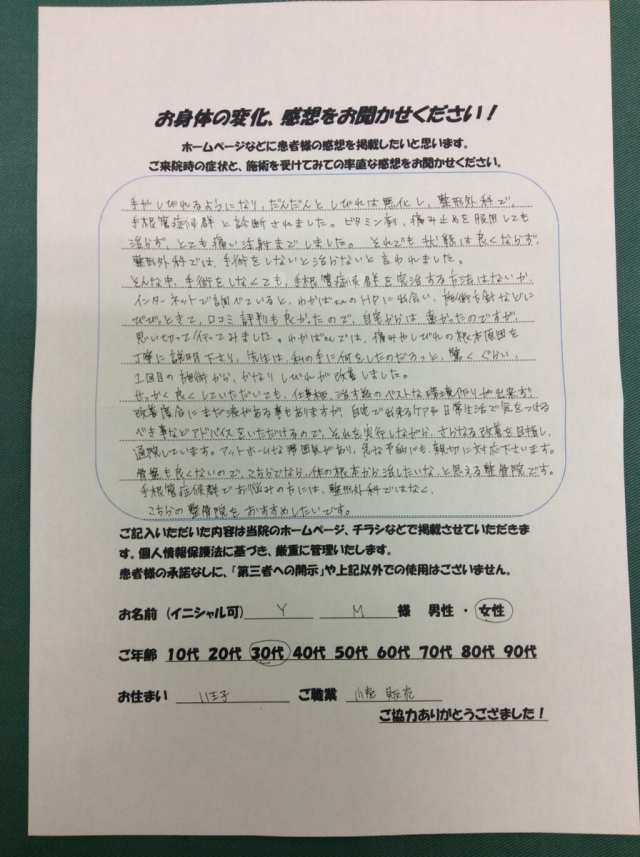 お身体の変化、感想をお聞かせください！
ホームページなどに患者様の感想を掲載したいと思います。
ご来院時の症状と、施術を受けてみての率直な感想をお聞かせください。
手がしびれるようになり、だんだんとしびれは悪化し、整形外科で、
手根管症候群と診断されました。ビタミン剤、痛み止めを服用しても
治らず、とても痛い注射までしました。それでも状態は良くならず、
整形外科では、手術をしないと治らないと言われました。
そんな中、手術をしなくても、手根管症候群を完治する方法はないか、
インターネットで調べていると、わかばさんのHPに出会い、施術方針などに
びびっときて、口コミ評判も良かったので、自宅からは遠かったのですが、
思い切って行ってみました。わかばさんでは、痛みやしびれの根本原因を
丁寧に説明下さり、先生は、私の手に何をしたのだろっと、驚くぐらい、
1回目の施術から、かなりしびれが改善しました。
せっかく良くしていただいても、仕事柄、治す為のベストな環境作りが出来ず、
改善度合にまだ波がある事もありますが、自宅で出来るケアや日常生活で気をつける
べき事などアドバイスをいただけるので、それを実行しながら、さらなる改善を目指し、
通院しています。アットホームな雰囲気があり、急な予約にも、親切に対応下さいます。
骨盤も良くないので、こちらでなら、体の根本から治したいな、と思える整骨院です。
手根管症候群でお悩みの方には、整形外科ではなく、
こちらの整骨院をおすすめしたいです。
ご記入いただいた内容は当院のホームページ、チラシなどで掲載させていただきま
す。個人情報保護法に基づき、厳重に管理いたします。
患者様の承諾なしに、「第三者への開示」や上記以外での使用はございません。
お名前（イニシャル可） Y M 様 男性・女性
ご年齢 10代 20代 30代 40代 50代 60代 70代 80代 90代
お住まい 八王子 ご職業 販売
ご協力ありがとうござました！